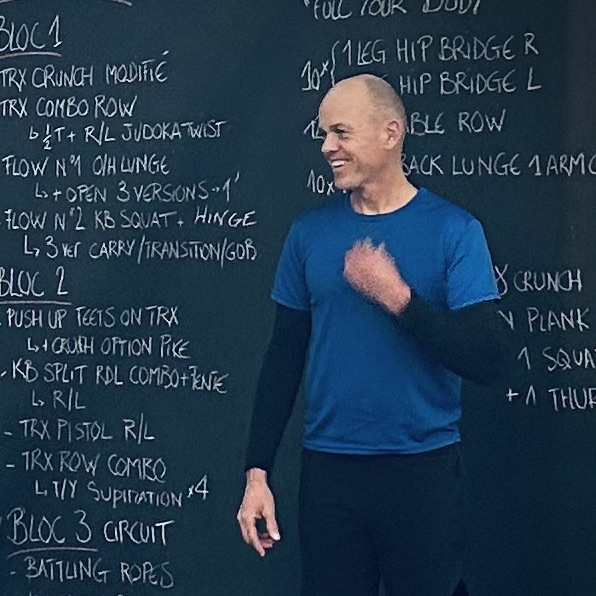 BLOC 1
TRX CRUNCH MODIFIÉ
TRX COMBO ROW
↳ ½ T + R/L JUDOKA TWIST
FLOW N°1 O/H LUNGE
↳ + OPEN 3 VERSIONS → 1'
- FLOW N°2 KB SQUAT + HINGE
↳ 3 VER CARRY/TRANSITION/GOB
BLOC 2
- PUSH UP FEETS ON TRX
↳ + CRUSH OPTION PIKE
- KB SPLIT RDL COMBO +
↳ R/L
- TRX PISTOL R/L
- TRX ROW COMBO
↳ T/Y SUPINATION x4
BLOC 3 CIRCUIT
- BATTLING ROPES
"FULL YOUR BODY
10x { 1 LEG HIP BRIDGE R
HIP BRIDGE L
BLE ROW
10x BACK LUNGE 1 ARM
X CRUNCH
PLANK
1 SQUA
+ 1 THUR